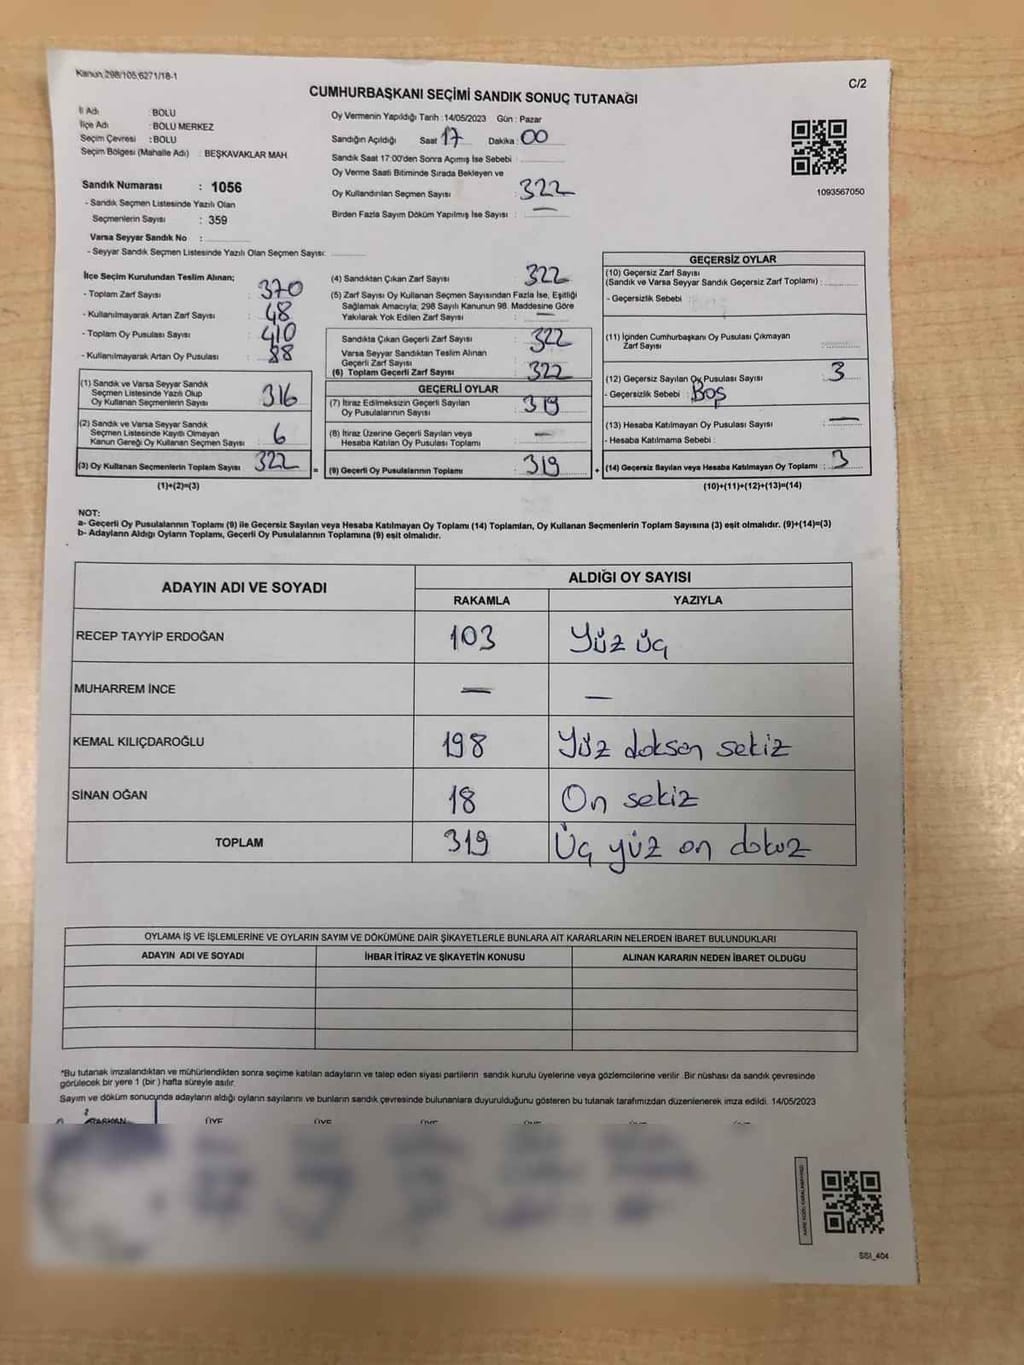 Kanun 298/105;6271/18-1
C/2
CUMHURBAŞKANI SEÇİMİ SANDIK SONUÇ TUTANAĞI
İl Adı : BOLU
İlçe Adı : BOLU MERKEZ
Seçim Çevresi : BOLU
Seçim Bölgesi (Mahalle Adı) : BEŞKAVAKLAR MAH
Sandık Numarası : 1056
- Sandık Seçmen Listesinde Yazılı Olan
Seçmenlerin Sayısı : 359
Varsa Seyyar Sandık No :
- Seyyar Sandık Seçmen Listesinde Yazılı Olan Seçmen Sayısı:
Oy Vermenin Yapıldığı Tarih :14/05/2023 Gün : Pazar
Sandığın Açıldığı Saat 17 Dakika : 00
Sandık Saat 17:00'den Sonra Açımış İse Sebebi :
Oy Verme Saati Bitiminde Sırada Bekleyen ve
Oy Kullandırılan Seçmen Sayısı : 322
Birden Fazla Sayım Döküm Yapılmış İse Sayısı : —
1093567050
İlçe Seçim Kurulundan Teslim Alınan;
- Toplam Zarf Sayısı : 370
- Kullanılmayarak Artan Zarf Sayısı : 48
- Toplam Oy Pusulası Sayısı : 410
- Kullanılmayarak Artan Oy Pusulası : 88
(1) Sandık ve Varsa Seyyar Sandık
Seçmen Listesinde Yazılı Olup
Oy Kullanan Seçmenlerin Sayısı : 316
(2) Sandık ve Varsa Seyyar Sandık
Seçmen Listesinde Kayıtlı Olmayan
Kanun Gereği Oy Kullanan Seçmen Sayısı : 6
(3) Oy Kullanan Seçmenlerin Toplam Sayısı : 322
(1)+(2)=(3)
(4) Sandıktan Çıkan Zarf Sayısı : 322
(5) Zarf Sayısı Oy Kullanan Seçmen Sayısından Fazla İse, Eşitliği
Sağlamak Amacıyla; 298 Sayılı Kanunun 98. Maddesine Göre
Yakılarak Yok Edilen Zarf Sayısı : —
Sandıkta Çıkan Geçerli Zarf Sayısı : 322
Varsa Seyyar Sandıktan Teslim Alınan
Geçerli Zarf Sayısı :
(6) Toplam Geçerli Zarf Sayısı : 322
GEÇERLİ OYLAR
(7) İtiraz Edilmeksizin Geçerli Sayılan
Oy Pusulalarının Sayısı : 319
(8) İtiraz Üzerine Geçerli Sayılan veya
Hesaba Katılan Oy Pusulası Toplamı : —
= (9) Geçerli Oy Pusulalarının Toplamı : 319
GEÇERSİZ OYLAR
(10) Geçersiz Zarf Sayısı
(Sandık ve Varsa Seyyar Sandık Geçersiz Zarf Toplamı) :
- Geçersizlik Sebebi :
(11) İçinden Cumhurbaşkanı Oy Pusulası Çıkmayan
Zarf Sayısı :
(12) Geçersiz Sayılan Oy Pusulası Sayısı : 3
- Geçersizlik Sebebi : Boş
(13) Hesaba Katılmayan Oy Pusulası Sayısı : —
- Hesaba Katılmama Sebebi :
+ (14) Geçersiz Sayılan veya Hesaba Katılmayan Oy Toplamı : 3
(10)+(11)+(12)+(13)=(14)
NOT:
a- Geçerli Oy Pusulalarının Toplamı (9) ile Geçersiz Sayılan veya Hesaba Katılmayan Oy Toplamı (14) Toplamları, Oy Kullanan Seçmenlerin Toplam Sayısına (3) eşit olmalıdır. (9)+(14)=(3)
b- Adayların Aldığı Oyların Toplamı, Geçerli Oy Pusulalarının Toplamına (9) eşit olmalıdır.
ADAYIN ADI VE SOYADI ALDIĞI OY SAYISI
RAKAMLA YAZIYLA
RECEP TAYYİP ERDOĞAN 103 Yüz üç
MUHARREM İNCE — —
KEMAL KILIÇDAROĞLU 198 Yüz doksan sekiz
SİNAN OĞAN 18 On sekiz
TOPLAM 319 Üç yüz on dokuz
OYLAMA İŞ VE İŞLEMLERİNE VE OYLARIN SAYIM VE DÖKÜMÜNE DAİR ŞİKAYETLERLE BUNLARA AİT KARARLARIN NELERDEN İBARET BULUNDUKLARI
ADAYIN ADI VE SOYADI İHBAR İTİRAZ VE ŞİKAYETİN KONUSU ALINAN KARARIN NEDEN İBARET OLDUĞU
*Bu tutanak imzalandıktan ve mühürlendikten sonra seçime katılan adayların ve talep eden siyasi partilerin sandık kurulu üyelerine veya gözlemcilerine verilir. Bir nüshası da sandık çevresinde
görülecek bir yere 1 (bir ) hafta süreyle asılır.
Sayım ve döküm sonucunda adayların aldığı oyların sayılarını ve bunların sandık çevresinde bulunanlara duyurulduğunu gösteren bu tutanak tarafımızdan düzenlenerek imza edildi. 14/05/2023
SSI_404